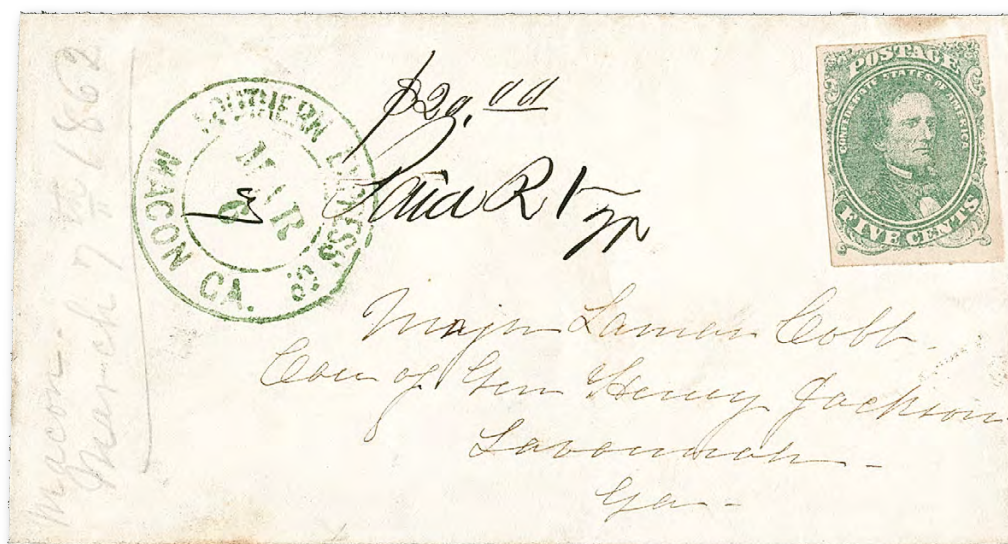 Macon.
March 7 th 1862
SOUTHERN EXPRESS CO
MAR
6
MACON GA.
$20.00
Paid
POSTAGE
CONFEDERATE STATES OF AMERICA
FIVE CENTS
Major Lamar Cobb.
Care of Gen Henry Jackson
Savannah -
Ga -